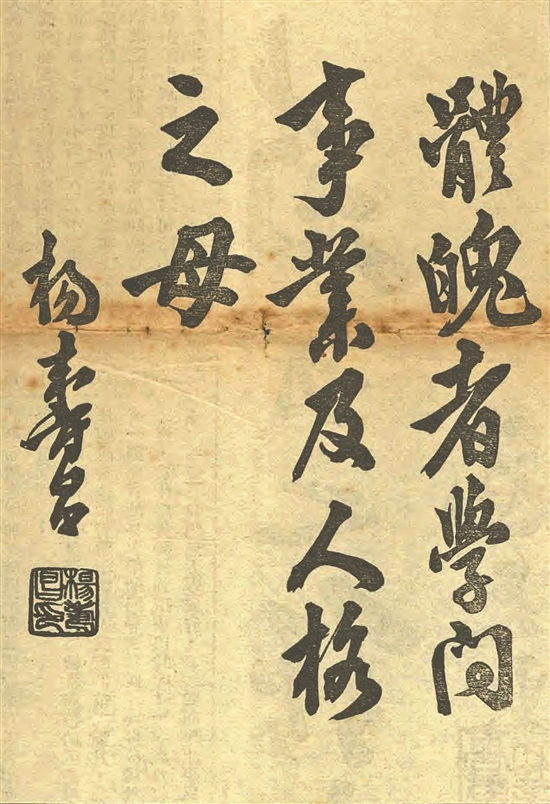 體魄者學問
事業及人格
之母
楊壽昌
楊壽昌印